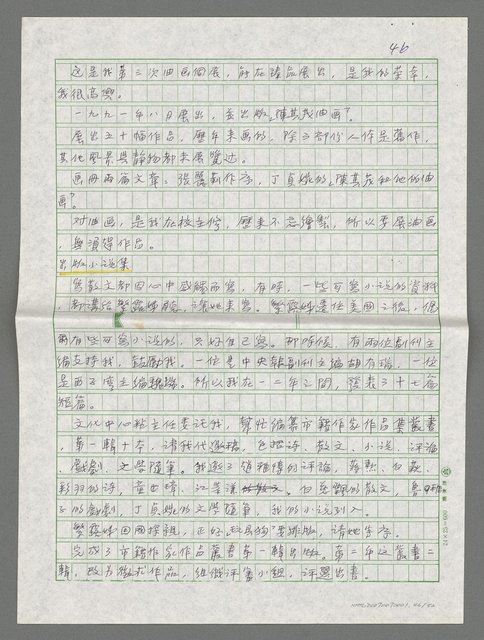 46
这是我第三次油画個展,能在臻品展出,是我的荣幸,
我很高興。
一九九一年八日展出,並出版「陳其茂油画」。
展出五十幅作品,歷年来画的,除三部份人体是舊作,
其他風景與靜物都未展覽过。
画冊两篇文章:張騫制作序,丁貞婉的「陳其茂和他的油
画」。
对油画,是我在校主修,歷来不忘繪製,所以要展油画
,與須得作品。
出版小說集
寫散文都因心中感触而寫,有時,一些可寫小說的資料
,都講給繁露姊聽,讓她来寫。繁露姊遷住美國之後,偶
有些可寫小說的,只好自己寫。那時候,有兩位副刊主
編支持我,鼓勵我。一位是中央報副刊主編胡有瑞,一位
是西子灣主編魏端。所以我在一二年之間,發表三十七篇
短篇。
文化中心 主任委託我,幫忙編纂市籍作家作品集叢書
,第一輯十本,請我代邀稿,包括詩、散文、小說、評論
、戲劇、文學隨筆。我邀了 的評論,蔣勲、白萩、
彩羽的詩, 江 的散文,
的戲劇,丁貞婉的文學隨筆,我的小說列入。
繁露姊回國探親,正好「 」要排版,請她写序。
完成了市籍作家作品叢書第一輯出版。第二年这叢書二
輯,改为徵求作品,組織評審小組,評選出書。
24×25=600